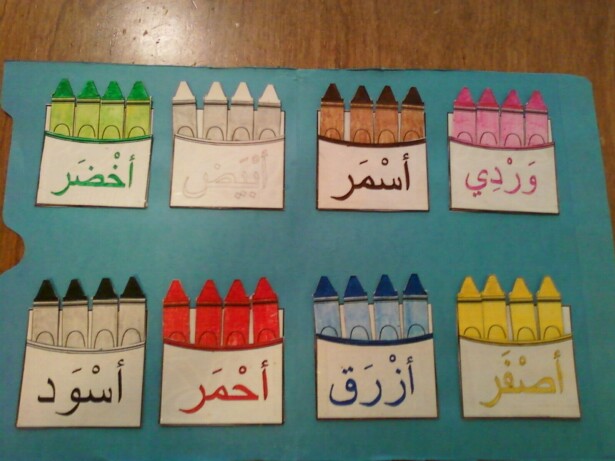 وَرْدِي
أسْمَر
أبْيَض
أخْضَر
أصْفَر
أزْرَق
أحْمَر
أسْوَد